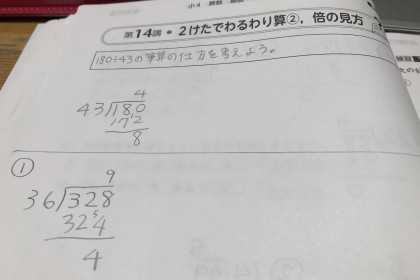 小4 算数
第14講・2けたでわるわり算②, 倍の見方
180÷43の筆算の仕方を考えよう。
4
43)180
172
8
①
9
36)328
32⁵4
4